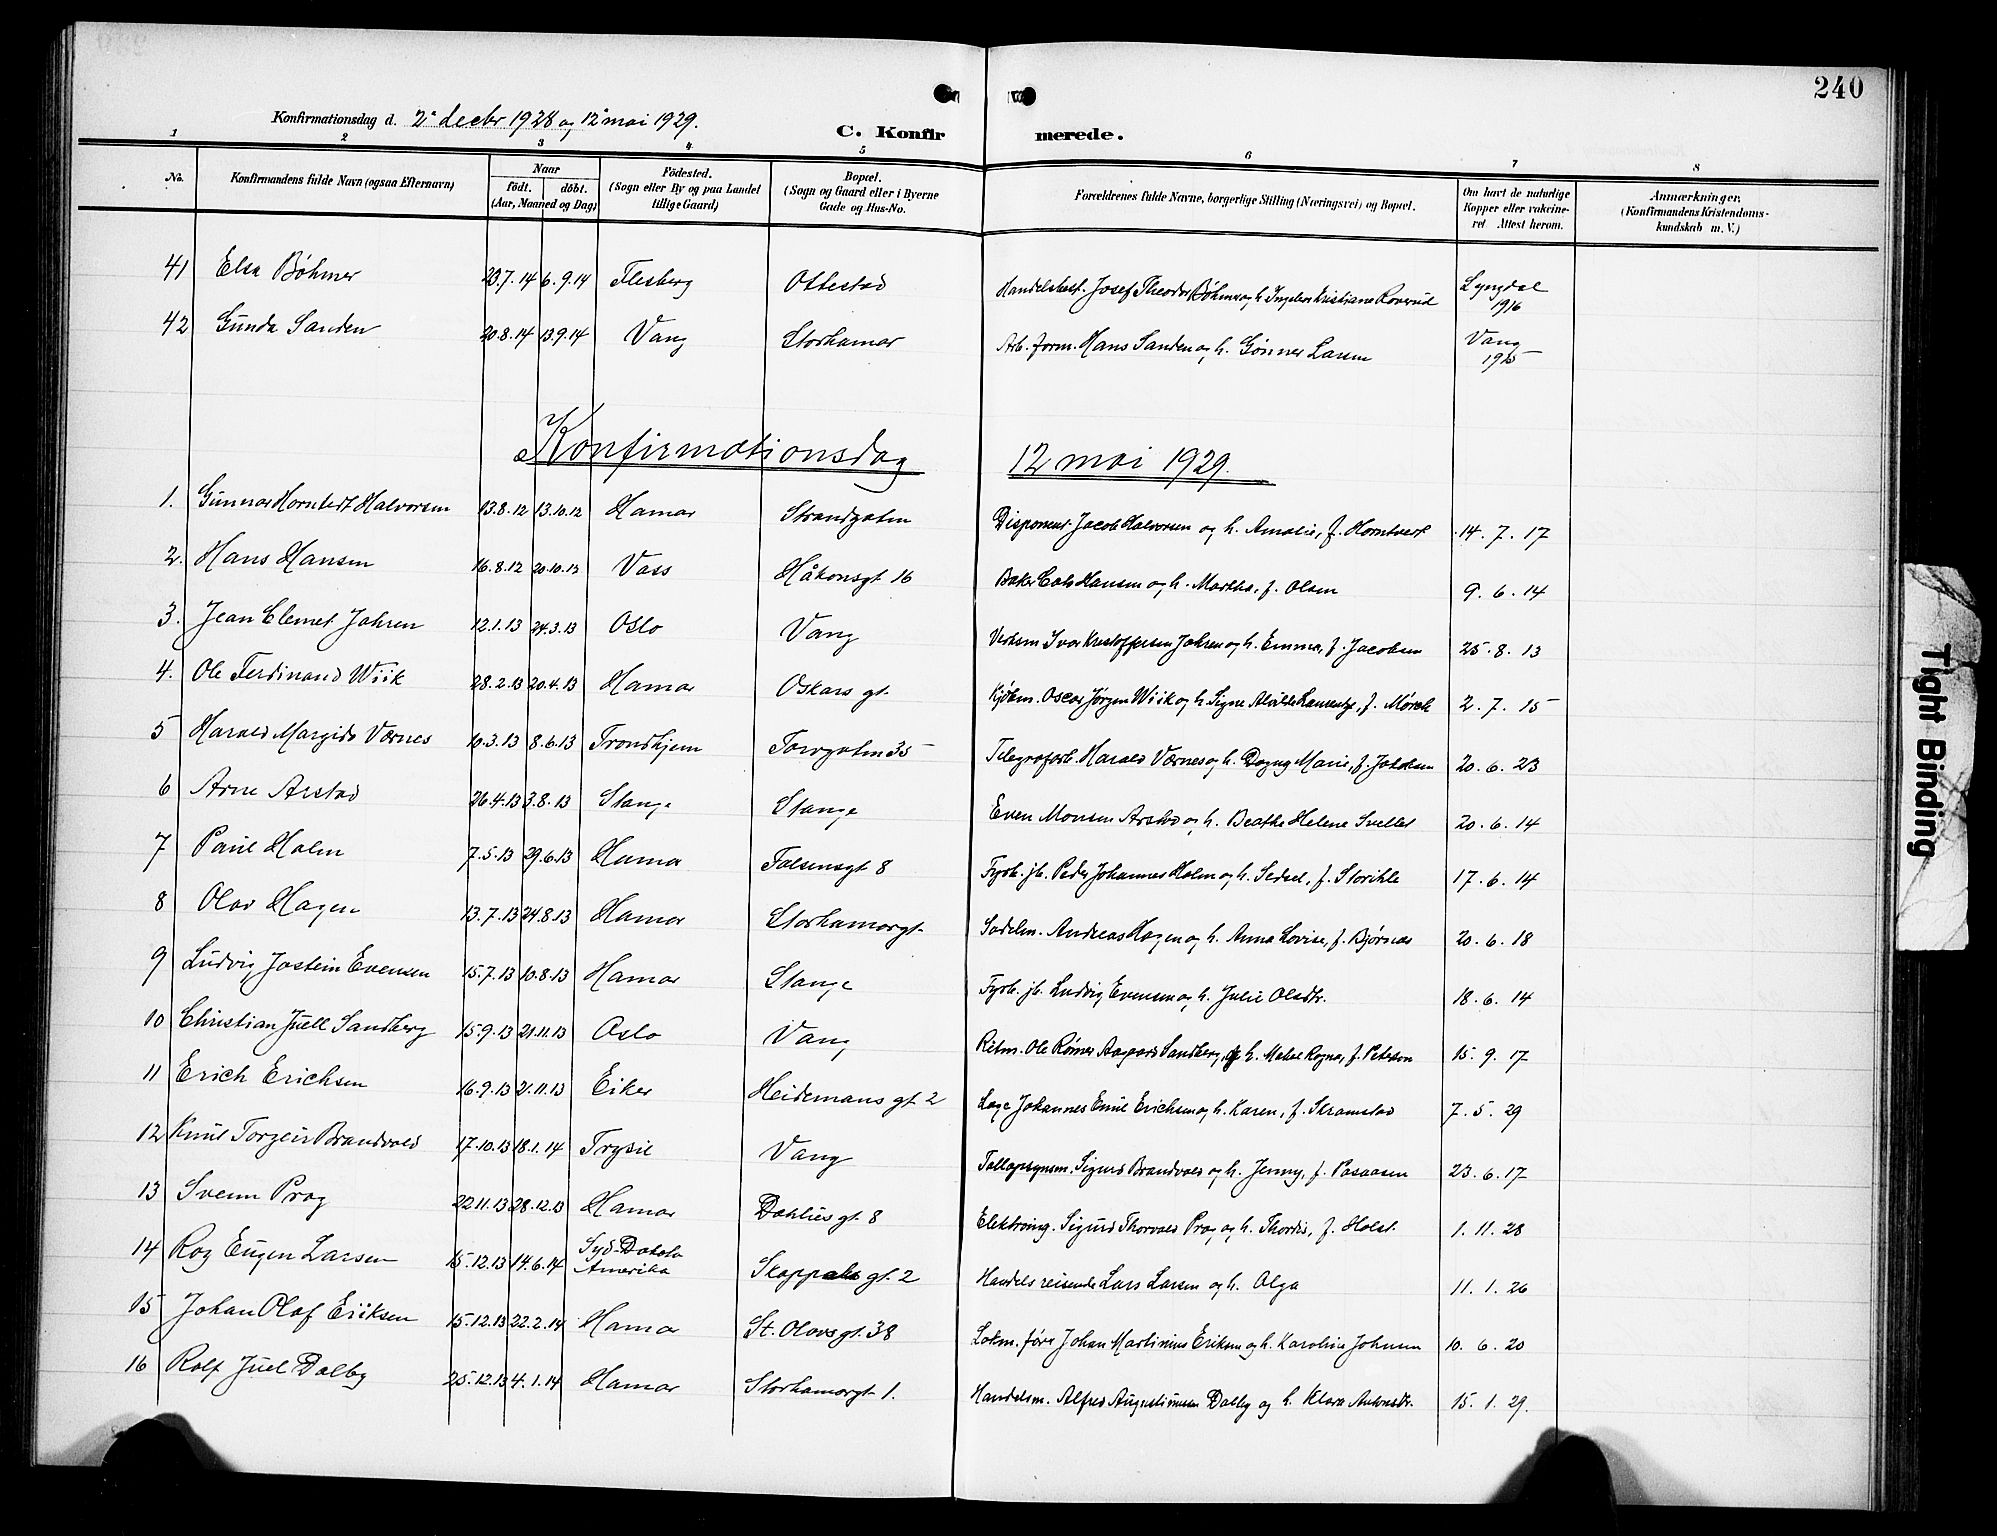 240
Konfirmationsdag d. 2' decbr 1928 og 12' mai 1929.
C. Konfirmerede.
1 2 3 4 5 6 7 8
No. Konfirmandens fulde Navn (ogsaa Efternavn) Naar født. døbt. (Aar, Maaned og Dag) Fødested. (Sogn eller By og paa Landet tillige Gaard) Bopæl. (Sogn og Gaard eller i Byerne Gade og Hus-No. Forældrenes fulde Navne, borgerlige Stilling (Næringsvei) og Bopæl. Om havt de naturlige Kopper eller vakcineret Attest herom. Anmærkninger. (Konfirmandens Kristendomskundskab m. V.)
41 Elsa Bøhmer 23.7.14 6.9.14 Flesberg Ottestad Handelsbest. Josef Theodor Bøhmer og h. Ingeborg Kristiane Roverud Lyngdal 1916
42 Gunda Sanden 20.8.14 13.9.14 Vang Storhamar Arb.form. Hans Sanden og h. Gønner Larsen Vang 1915
Konfirmationsdag 12 mai 1929.
1. Gunnar Horntvedt Halvorsen 13.8.12 13.10.12 Hamar Strandgaten Disponent Jacob Halvorsen og h. Amalie, f. Horntvedt 14.7.17
2. Hans Hansen 16.8.12 20.10.12 Vass Håkonsgt 16 Baker Hansen og h. Martha, f. Olsen 9.6.14
3. Jean Clemet Jahren 12.1.13 24.3.13 Oslo Vang Verksm. Ivar Kristoffersen Jahren og h. Emma, f. Jacobsen 25.8.13
4. Ole Ferdinand Wiik 28.2.13 20.4.13 Hamar Oskars gt. Kjøbm. Oscar Jørgen Wiik og h. Signe Alvilde f. Mørch 2.7.15
5 Harald Margido Værnes 10.3.13 8.6.13 Trondhjem Torvgaten 35 Telegrafarb. Harald Værnes og h. Dagny Marie, f. Jakobsen 20.6.23
6 Arne Arstad 26.4.13 3.8.13 Stange Stange Even Monsen Arstad og h. Beathe Helene Svellet 20.6.14
7 Paul Holm 7.5.13 29.6.13 Hamar Falsensgt 8 Fyrb. jb. Peder Johannes Holm og h. Sedsel, f. Storihle 17.6.14
8 Olav Hagen 13.7.13 24.8.13 Hamar Storhamargt. Sadelm. Andreas Hagen og h. Anna Lovise, f. Bjørnas 20.6.18
9 Ludvig Jostein Evensen 15.7.13 10.8.13 Hamar Stange Fyrb. jb. Ludvig Evensen og h. Julie Olsdtr. 18.6.14
10 Christian Juell Sandberg 15.9.13 21.11.13 Oslo Vang Ritm. Ole Rømer Aagaard Sandberg og h. Mabel Ragna, f. Peterson 15.9.17
11 Erich Erichsen 16.9.13 2.11.13 Eiker Heidemans gt. 2 Læge Johannes Emil Erichsen og h. Karen, f. Skramstad 7.5.29
12 Knut Torgeir Brandvold 17.10.13 18.1.14 Trysil Vang Tollopsynsm. Sigurd Brandvold og h. Jenny, f. Paasaasen 23.6.17
13 Svenn Prag 22.11.13 28.12.13 Hamar Dahlies gt. 8 Elektroing. Sigurd Thorvald Prag og h. Thordis, f. Holst 1.11.28
14 Roy Eugen Larsen 15.12.13 14.6.14 Syd-Dakota Amerika Skappels gt. 2 Handelsreisende Lars Larsen og h. Olga 11.1.26
15 Johan Olaf Eriksen 15.12.13 22.2.14 Hamar St. Olavs gt. 38 Lokm.fører Johan Martinius Eriksen og h. Karoline Johnsen 10.6.20
16 Rolf Juel Dalby 25.12.13 4.1.14 Hamar Storhamargt 1. Handelsm. Alfred Augustinusen Dalby og h. Klara Antonsdtr. 15.1.29.
Tight Binding